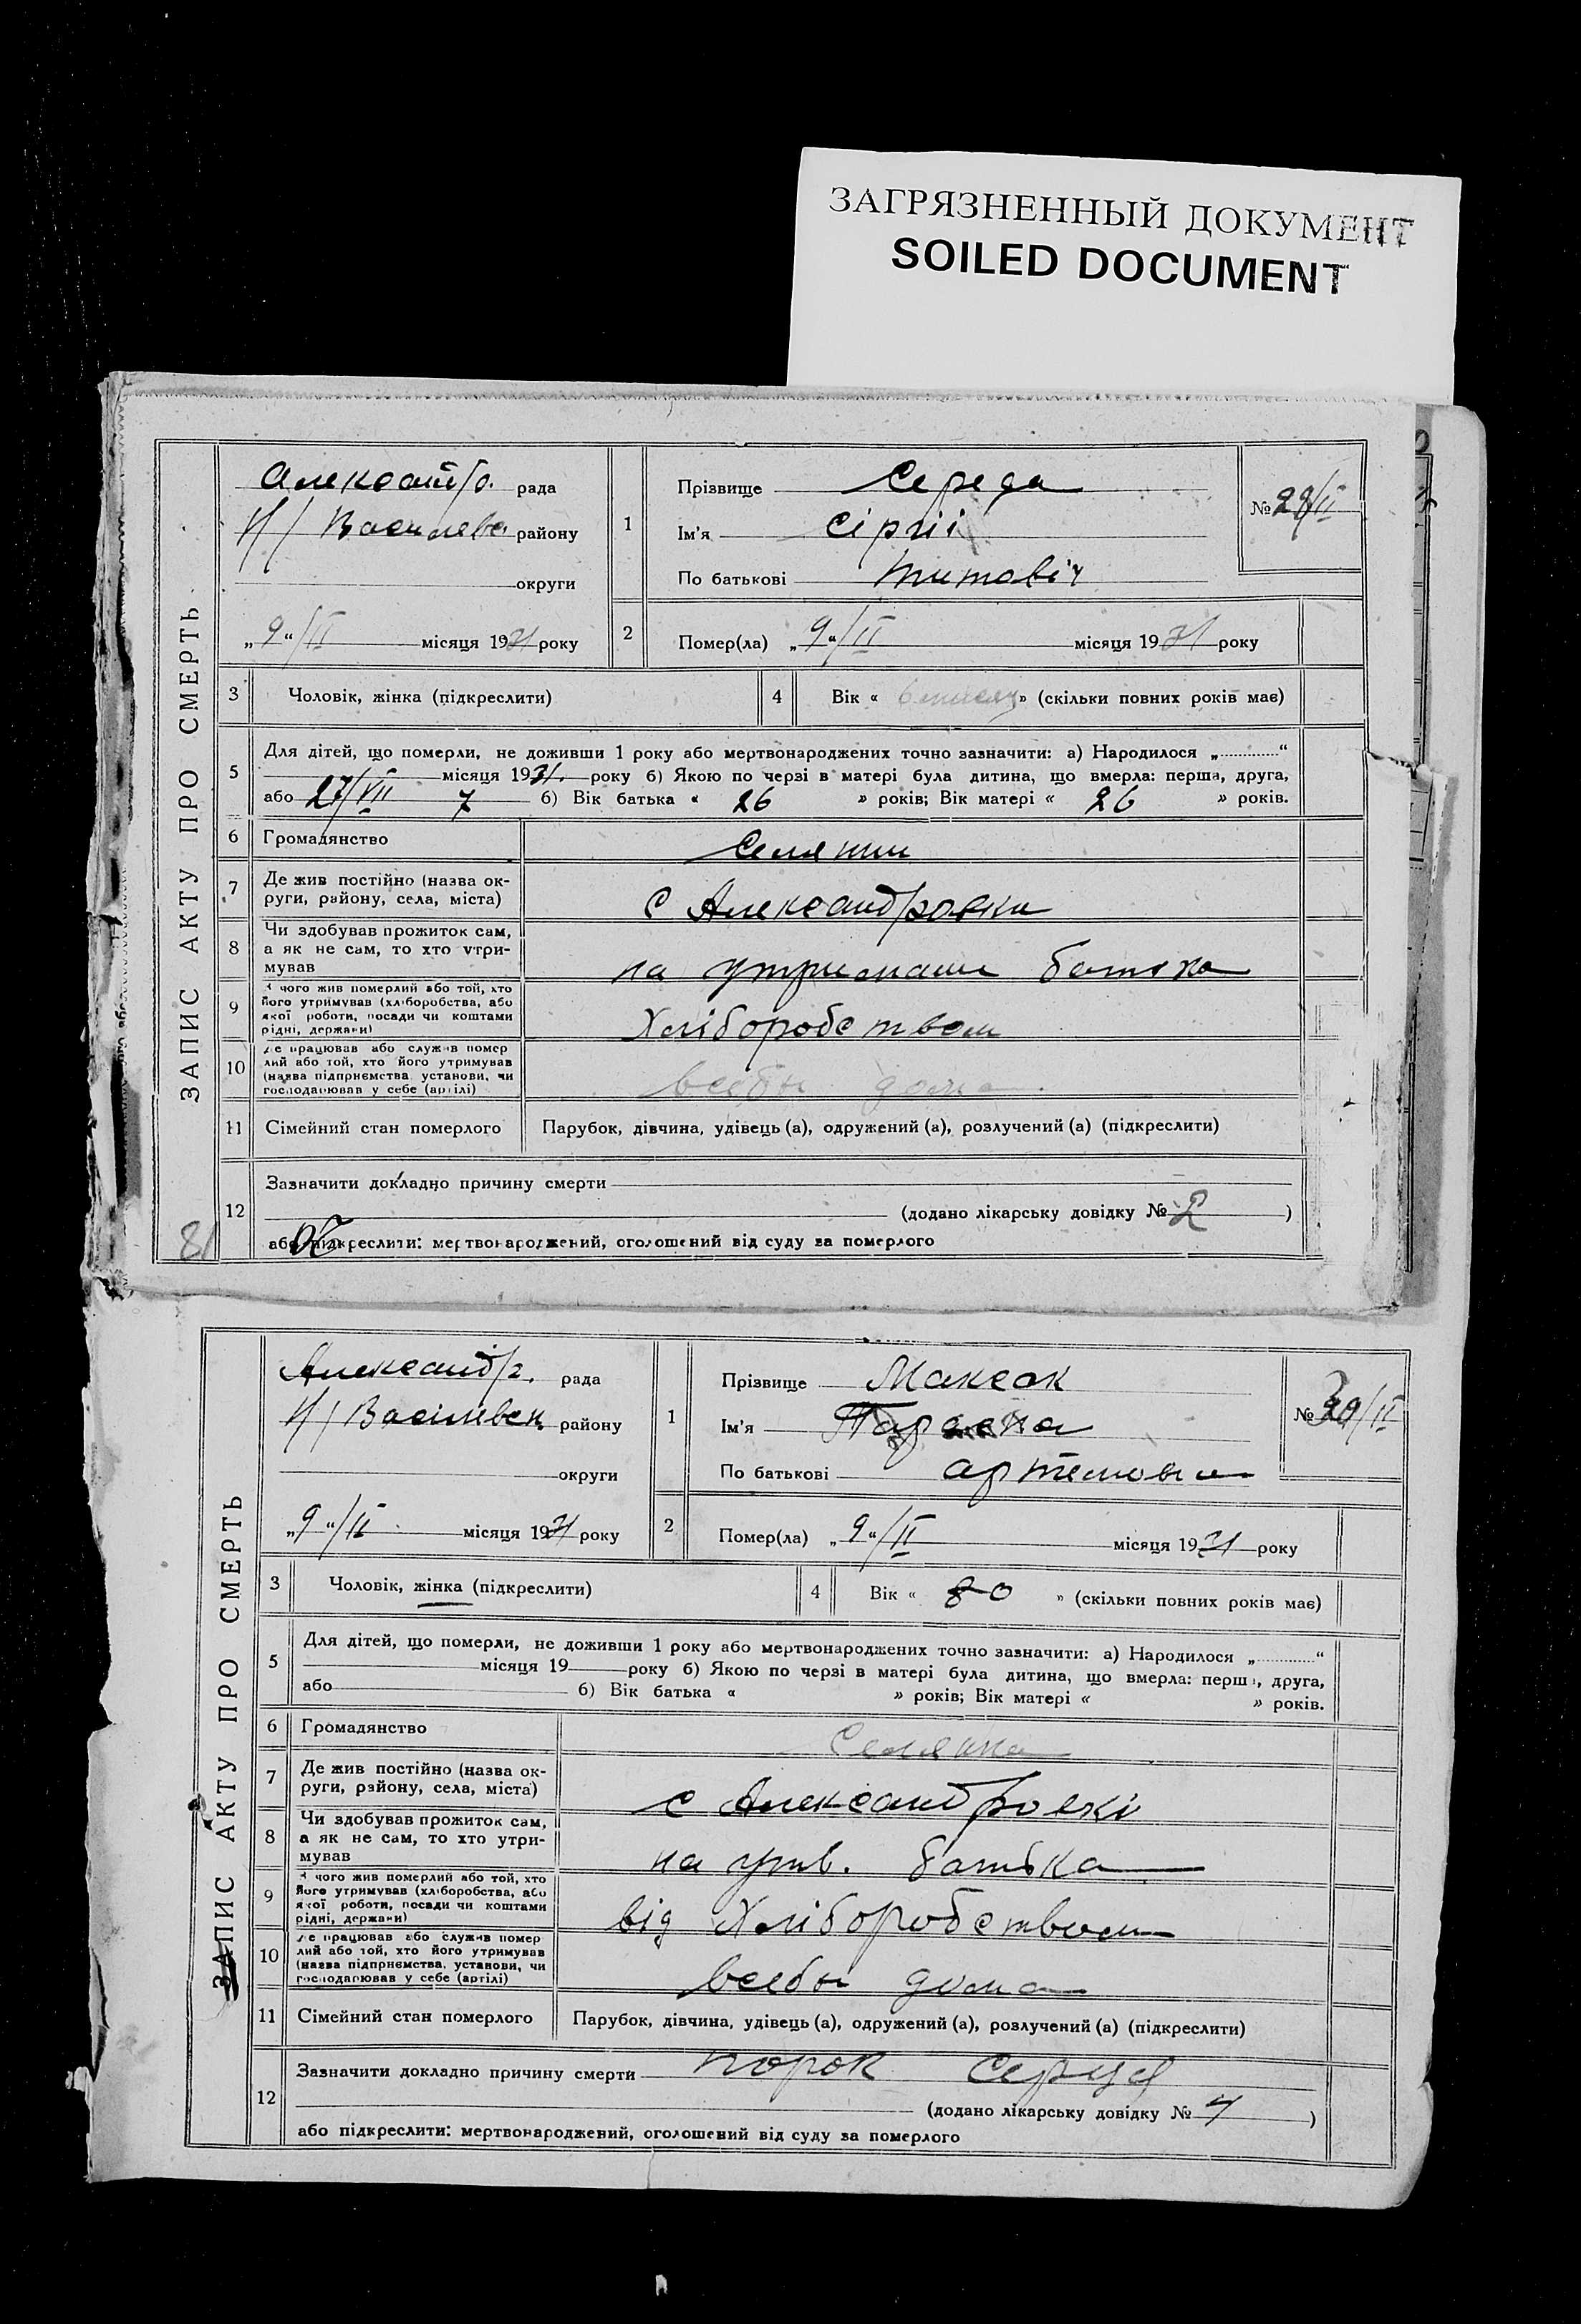 ЗАГРЯЗНЕННЫЙ ДОКУМЕНТ
SOILED DOCUMENT
ЗАПИС АКТУ ПРО СМЕРТЬ
Александр. рада
Н/Василевс. району
округи
„9“/II місяця 1931 року
1
Прізвище Середа
Ім'я Сіргії
По батькові Титовіч
№ 29/II
2 Помер(ла) „9“/II місяця 1931 року
3 Чоловік, жінка (підкреслити)
4 Вік « 6 месяц » (скільки повних років має)
5 Для дітей, що померли, не доживши 1 року або мертвонароджених точно зазначити: а) Народилося „ “
місяця 1931. року б) Якою по черзі в матері була дитина, що вмерла: перша, друга,
або 27/VII 7 б) Вік батька « 26 » років; Вік матері « 26 » років.
6 Громадянство Селянин
7 Де жив постійно (назва ок-
руги, району, села, міста) с Александровки
8 Чи здобував прожиток сам,
а як не сам, то хто утри-
мував на утримании батька
9 З чого жив померлий або той, хто
його утримував (хліборобства, або
якої роботи, посади чи коштами
рідні, держави) Хліборобством
10 Де працював або служив помер
лий або той, хто його утримував
(назва підприємства, установи, чи
господарював у себе (артілі) дома
11 Сімейний стан померлого Парубок, дівчина, удівець (а), одружений (а), розлучений (а) (підкреслити)
12 Зазначити докладно причину смерти
(додано лікарську довідку № 2 )
або підкреслити: мертвонароджений, оголошений від суду за померлого
81
ЗАПИС АКТУ ПРО СМЕРТЬ
Александр. рада
Н/Васілівск. району
округи
„9“/II місяця 1931 року
1
Прізвище Максак
Ім'я Параска
По батькові артемовна
№ 30/II
2 Помер(ла) „9“/II місяця 1931 року
3 Чоловік, жінка (підкреслити)
4 Вік « 80 » (скільки повних років має)
5 Для дітей, що померли, не доживши 1 року або мертвонароджених точно зазначити: а) Народилося „ “
місяця 19 року б) Якою по черзі в матері була дитина, що вмерла: перша, друга,
або б) Вік батька « » років; Вік матері « » років.
6 Громадянство Селянка
7 Де жив постійно (назва ок-
руги, району, села, міста) с Александровкі
8 Чи здобував прожиток сам,
а як не сам, то хто утри-
мував на утв. батька
9 З чого жив померлий або той, хто
його утримував (хліборобства, або
якої роботи, посади чи коштами
рідні, держави) від Хліборобством
10 Де працював або служив помер
лий або той, хто його утримував
(назва підприємства, установи, чи
господарював у себе (артілі) дома
11 Сімейний стан померлого Парубок, дівчина, удівець (а), одружений (а), розлучений (а) (підкреслити)
12 Зазначити докладно причину смерти порок Серця
(додано лікарську довідку № 4 )
або підкреслити: мертвонароджений, оголошений від суду за померлого